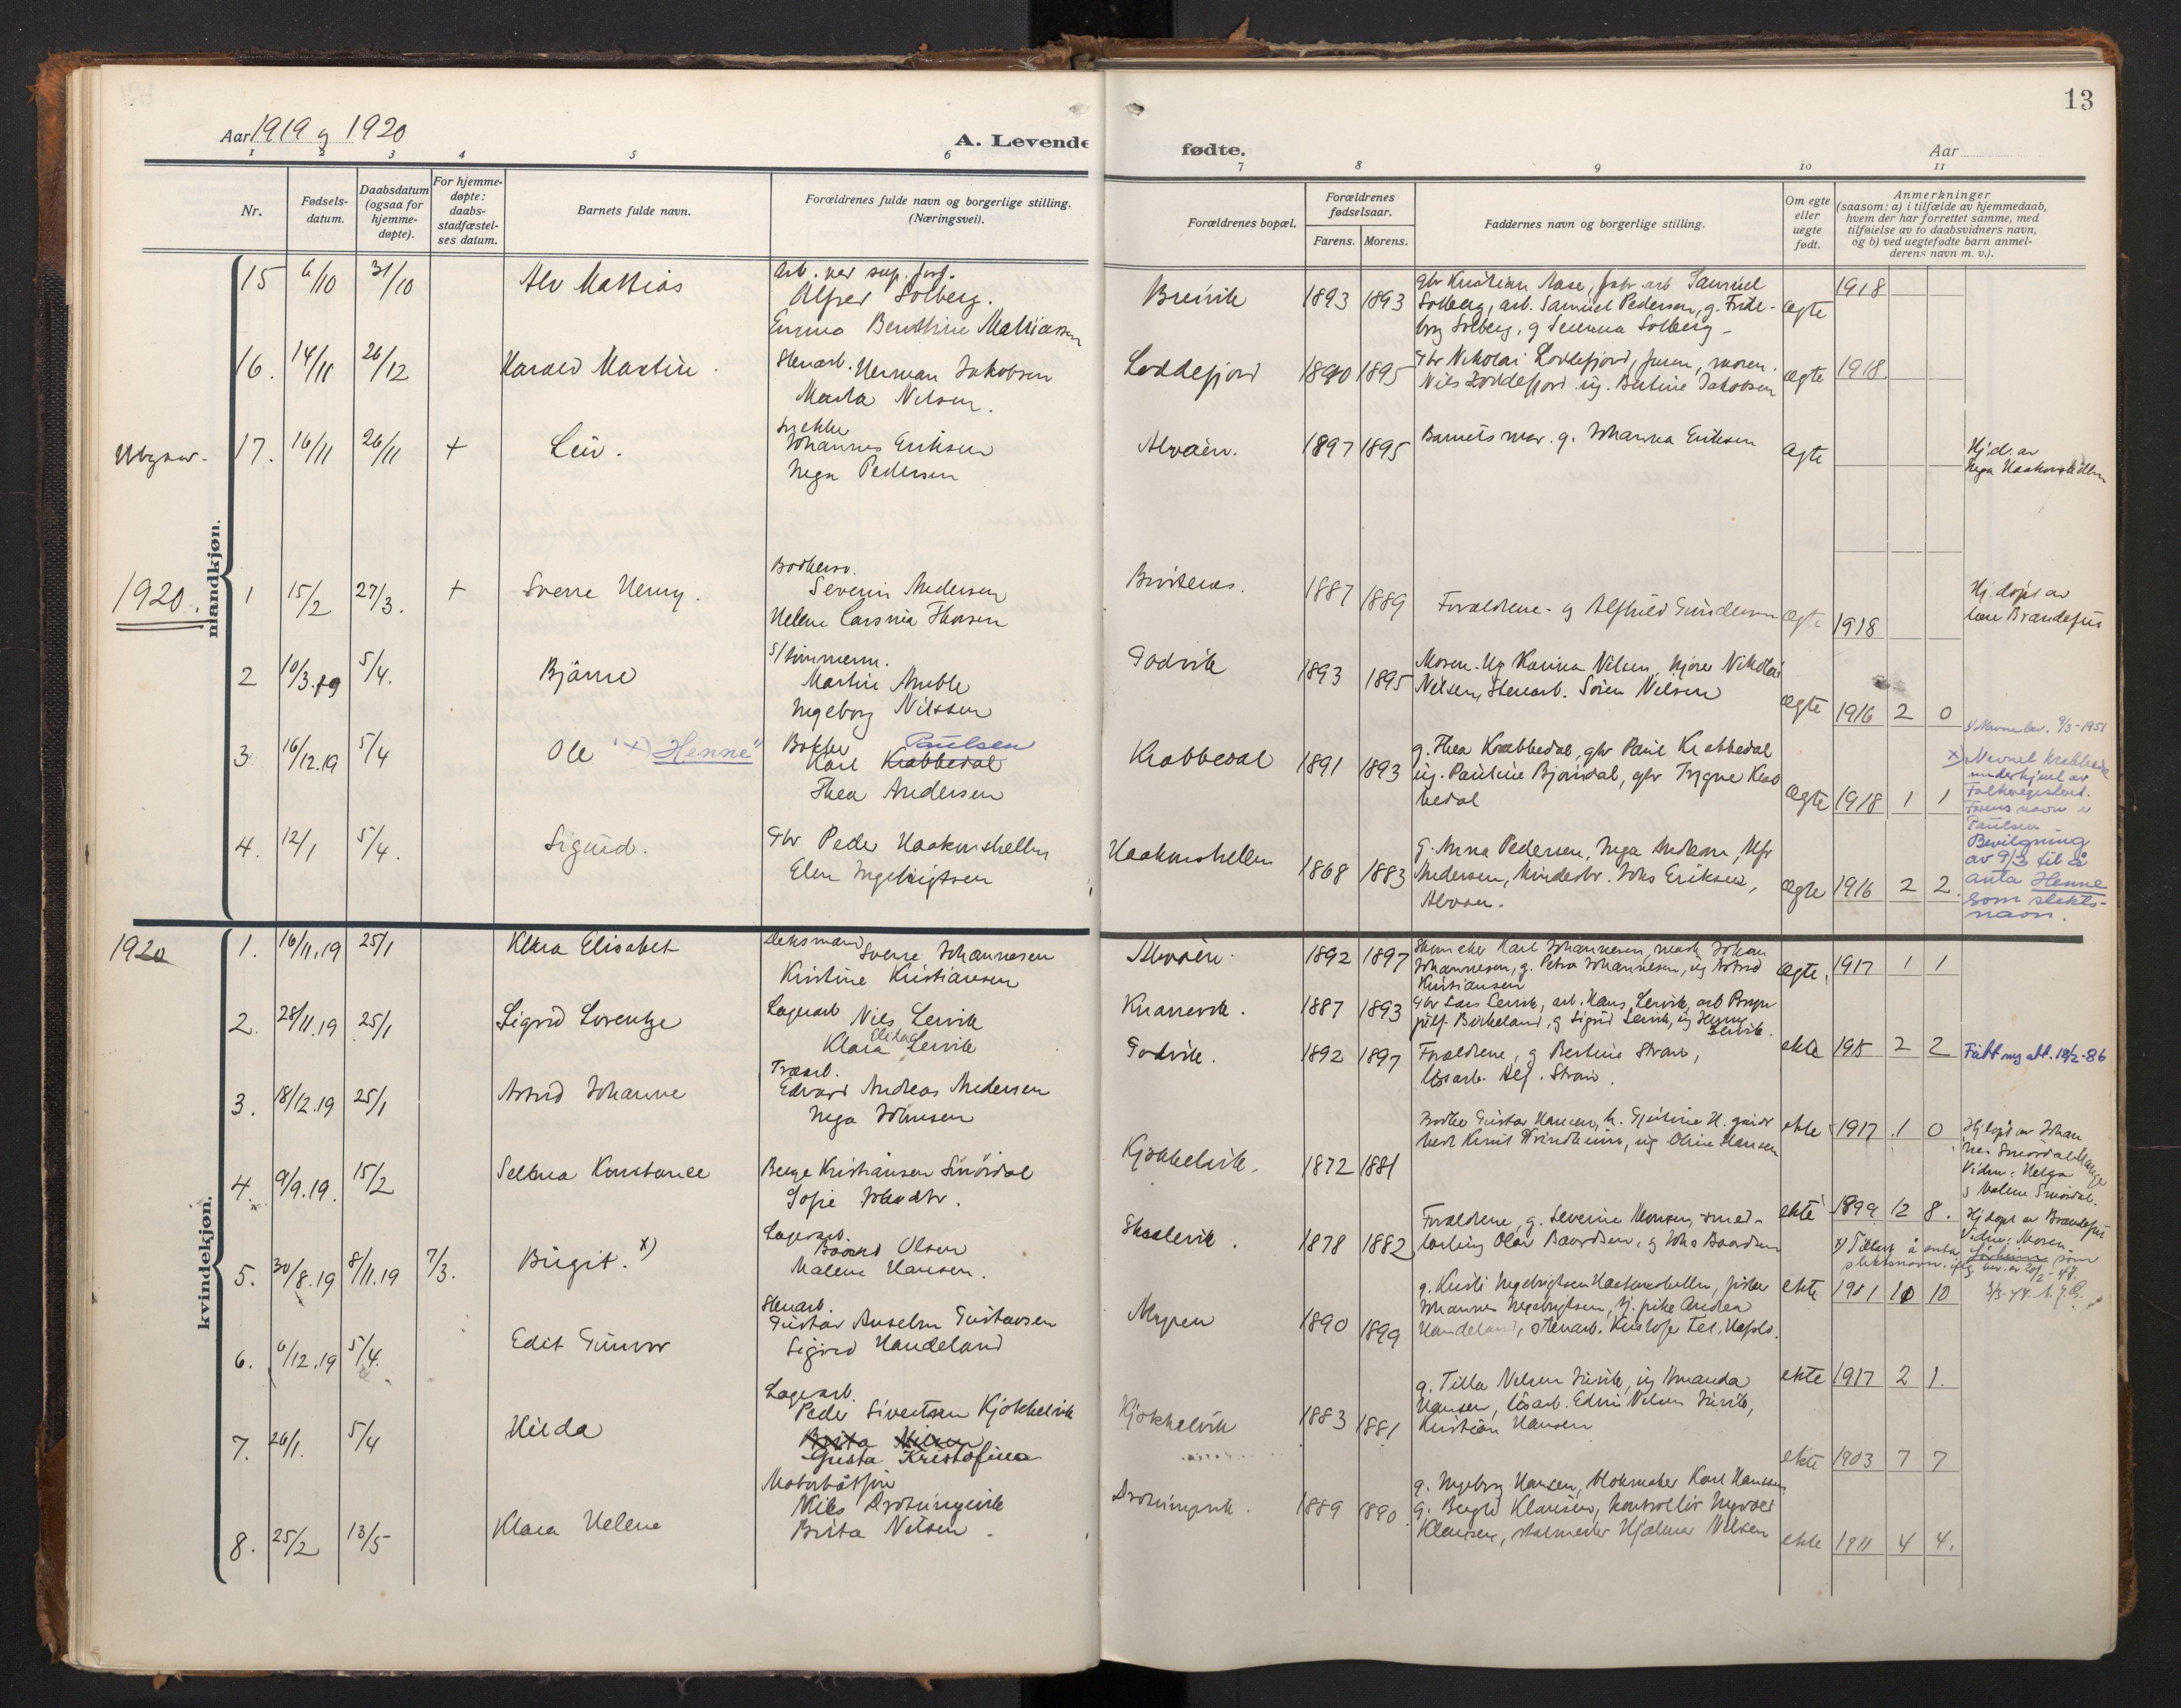 13
Aar 1919 g 1920
A. Levende fødte.
Aar
1 2 3 4 5 6 7 8 9 10 11
Nr.
Fødsels-
datum.
Daabsdatum
(ogsaa for
hjemme-
døpte).
For hjemme-
døpte:
daabs-
stadfæstel-
ses datum.
Barnets fulde navn.
Forældrenes fulde navn og borgerlige stilling.
(Næringsvei).
Forældrenes bopæl.
Forældrenes
fødselsaar.
Farens. Morens.
Faddernes navn og borgerlige stilling.
Om egte
eller
uegte
født.
Anmerkninger
(saasom: a) i tilfælde av hjemmedaab,
hvem der har forrettet samme, med
tilføielse av to daabsvidners navn,
og b) ved uegtefødte barn anmel-
derens navn m. v.).
mandkjøn.
15 6/10 31/10 Alv Mattias
Alfred Solberg.
Emma Mathiassen
Breivik 1893 1893
Solberg, arb. Samuel Pedersen, g.
Solberg, g Solberg
ægte 1918
16. 14/11 26/12 Harald Martin.
Stenarb. Herman Jakobsen
Marta Nilsen.
Loddefjord 1890 1895
Gbr Nikolai Loddefjord, faren, moren.
Nils Loddefjord ug. Bertine Jakobsen
ægte 1918.
17. 16/11 26/11 + Leiv.
Johannes Eriksen
Inga Pedersen
Alvøen. 1897 1895
Barnets mor. g. Johanna Eriksen
ægte
Hj.d. av
Inga Haakonshellen
1920.
1 15/2 27/3. + Sverre Henry.
Severin Andersen
Helene Hansen
1887 1889
Forældrene g Alfhild Gundersen
ægte 1918
Hj. døpt av
2 10/3.19 5/4. Bjarne
Martin
Ingeborg Nilssen
Godvik 1893 1895
Moren. Ug Karina Nilsen, Nikolai
Nilsen, Stenarb. Sören Nilsen
ægte 1916 2 0
3 16/12.19 5/4 Ole "x) Henne"
Bøkker Paulsen
Karl Krabbedal
Thea Andersen
Krabbedal 1891 1893
g. Thea Krabbedal, gbr Paul Krabbedal
ug. Pauline Bjørndal, gbr Trygve Krab
bedal
ægte 1918 1 1
1) Navnebev. 9/3-1951
x) Navnet Krabbedal
underkjent av
Folkeregisteret.
Farens navn er
Paulsen
Bevilgning
av 9/3 til å
anta Henne
som slekts-
navn.
4. 12/1 5/4. Sigurd.
Gbr Peder Haakonshellen
Elen Ingebrigtsen
Haakonshellen 1868 1883
g. Anna Pedersen, Inga Andersen,
Andersen, Johs Eriksen,
Alvøen.
ægte 1916 2 2.
1920
kvindekjøn.
1. 16/11.19 25/1 Klara Elisabet
Sverre Johannesen
Kristine Kristiansen
Alvøen. 1892 1897
Karl Johannesen, Johan
Johannesen, g. Petra Johannesen, ug Astrid
Kristiansen
ægte. 1917 1 1
2. 28/11.19 25/1 Sigrid Lorentze
Lagerarb Nils Lervik
Klara Elida Lervik
Knarrevik. 1887 1893
Gbr Lars Lervik, arb. Hans Lervik, arb
Birkeland, g Sigrid Lervik, ug
Lervik.
ekte 1915 2 2
Fått ny att. 18/2-86
3. 18/12.19 25/1 Astrid Johanne
Træarb.
Edvard Andreas Andersen
Inga Johnsen
Godvik. 1892 1897
Forældrene, g Bertine Strand,
løsarb. Alf. Strand.
ekte 1917 1 0
4. 9/9.19. 15/2 Selma Konstance
Berge Kristiansen Smördal
Sofie
Kjøkkelvik. 1872 1881
Gustav Hansen,
ug Oline Hansen
ekte 1899 12 8.
Hj. døpt av
Smördal
Vidner: Helga
g Malene Smördal.
5. 30/8.19 8/11.19 7/3. Birgit. x)
Lagerarb.
Baard Olsen
Malene Hansen.
Skaalevik. 1878 1882
Forældrene, g. Severine Monsen, smed-
lærling Olav Baardsen, g Johs Baardsen
ekte 1901 10 10
Hj døpt av
Vidner: Moren.
x) Tillatt å anta som
slektsnavn.
6. 6/12.19 5/4. Edit Gunvor
Stenarb.
Gustav Anselm Gustavsen
Sigrid Handeland
Myren 1890 1899
g. Kristi Ingebrigtsen Haakonshellen, fisker
Johannes Ingebrigtsen, Hj. pike Andrea
Handeland, stenarb.
ekte 1917 2 1.
7. 26/1. 5/4 Hilda
Lagerarb.
Peder Sivertsen Kjøkkelvik
Brita Nilsen
Gusta Kristofine
Kjøkkelvik 1883 1881
g. Tilla Nilsen ug Amanda
Hansen, løsarb. Edvin Nilsen
Kristian Hansen
ekte 1903 7 7
8. 25/2 13/5 Klara Helene
Nils Drotningvik
Brita Nilsen.
Drotningvik. 1889 1890.
g. Ingeborg Hansen, blokmaker Karl Hansen
g. Klausen, kontrollør Ingvald
Klausen, Hjalmar Nilsen
ekte 1911 4 4.